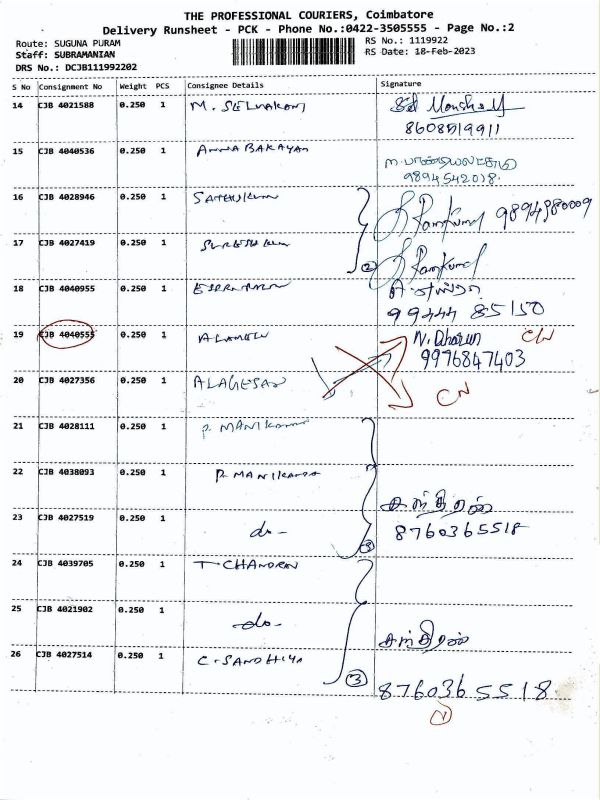 THE PROFESSIONAL COURIERS, Coimbatore
Delivery Runsheet - PCK - Phone No.:0422-3505555 - Page No.:2
Route: SUGUNA PURAM
RS No.: 1119922
Staff: SUBRAMANIAN
RS Date: 18-Feb-2023
DRS No.: DCJB111992202
S No Consignment No Weight PCS Consignee Details Signature
14 CJB 4021588 0.250 1 M. SELVARANI
15 CJB 4040536 0.250 1 ANNABAKAYAM
9894542018.
16 CJB 4028946 0.250 1 9894980009
17 CJB 4027419 0.250 1 SURESH
2
18 CJB 4040955 0.250 1
99444 85150
19 CJB 4040555 0.250 1 N. Dharun CN
9976847403
20 CJB 4027356 0.250 1 ALAGESAN CN
21 CJB 4028111 0.250 1 P. MANIKANDAN
22 CJB 4038093 0.250 1 P. MANIKANDA
23 CJB 4027519 0.250 1 do - 8760365518
3
24 CJB 4039705 0.250 1 T CHANDRAN
25 CJB 4021902 0.250 1 -do-
26 CJB 4027514 0.250 1 C. SANDHIYA
3 8760365518